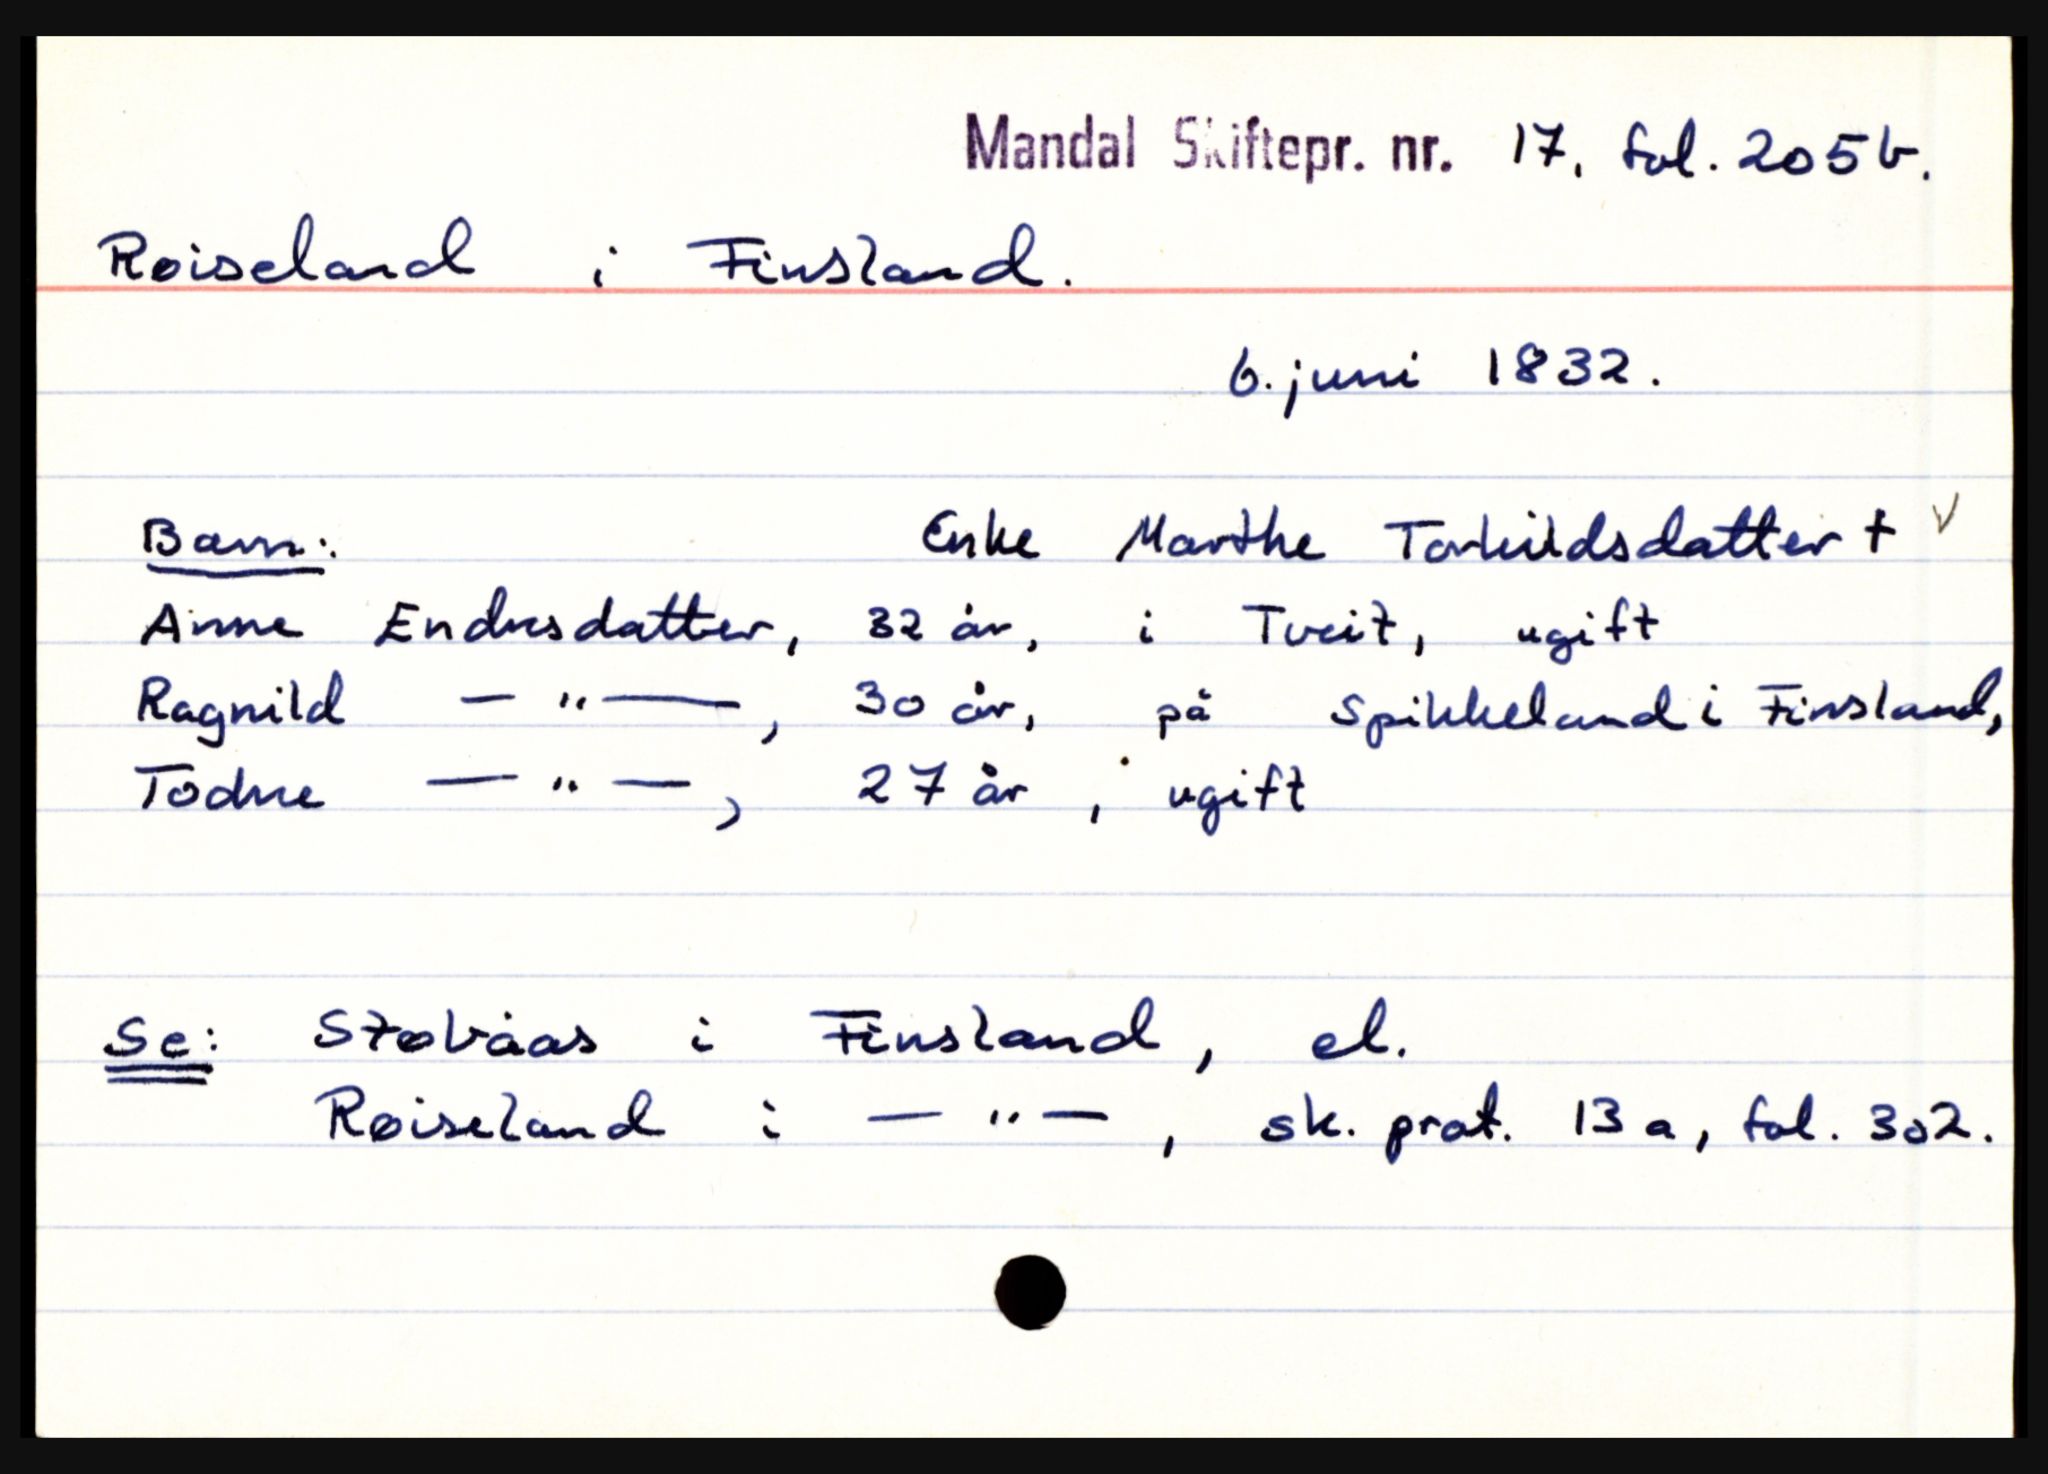 Mandal Skiftepr. nr. 17, fol. 205b.
Røiseland i Finsland.
6. juni 1832.
Barn: Enke Marthe Torkildsdatter + v
Anne Endresdatter, 32 år, i Tveit, ugift
Ragnild — " —, 30 år, på Spikkeland i Finsland,
Todne — " —, 27 år, ugift
Se: Støbåas i Finsland, el.
Røiseland i — " —, sk. prot. 13 a, fol. 302.